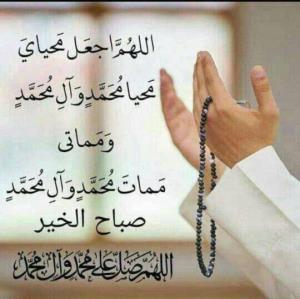 اللهُمَّ اجعَل مَحيايَ
مَحيا مُحَمَّدٍ وَآلِ مُحَمَّدٍ
وَمَماتى
مَماتَ مُحَمَّدٍ وَآلِ مُحَمَّدٍ
صباح الخير
اللهُمَّ صَلِّ عَلى مُحَمَّد وَآلِ مُحَمَّد